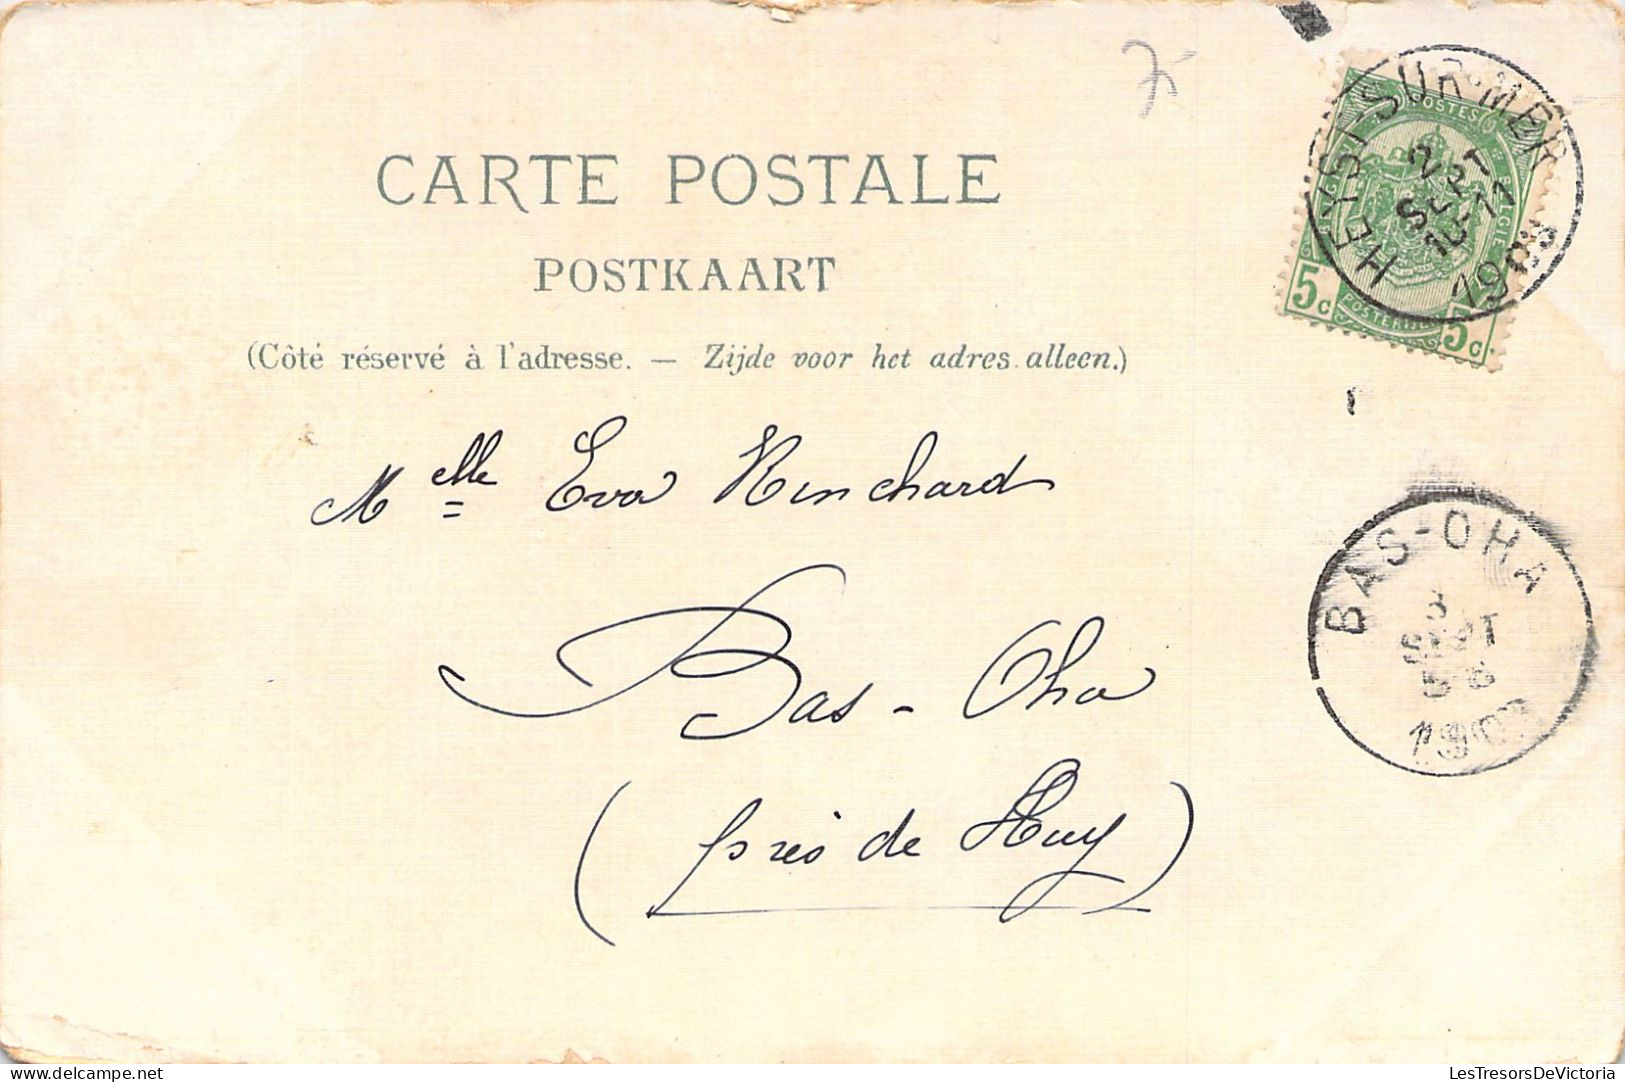 CARTE POSTALE
POSTKAART
(Côté réservé à l'adresse. — Zijde voor het adres alleen.)
POSTES
BELGIQUE
BELGIE
5c
POSTERIJEN
5c
HEYST-SUR-MER
2
SEPT
10-11
Melle Eva
Bas-Oha
(près de Huy)
BAS-OHA
3
SEPT
LesTresorsDeVictoria
© LesTresorsDeVictoria.com